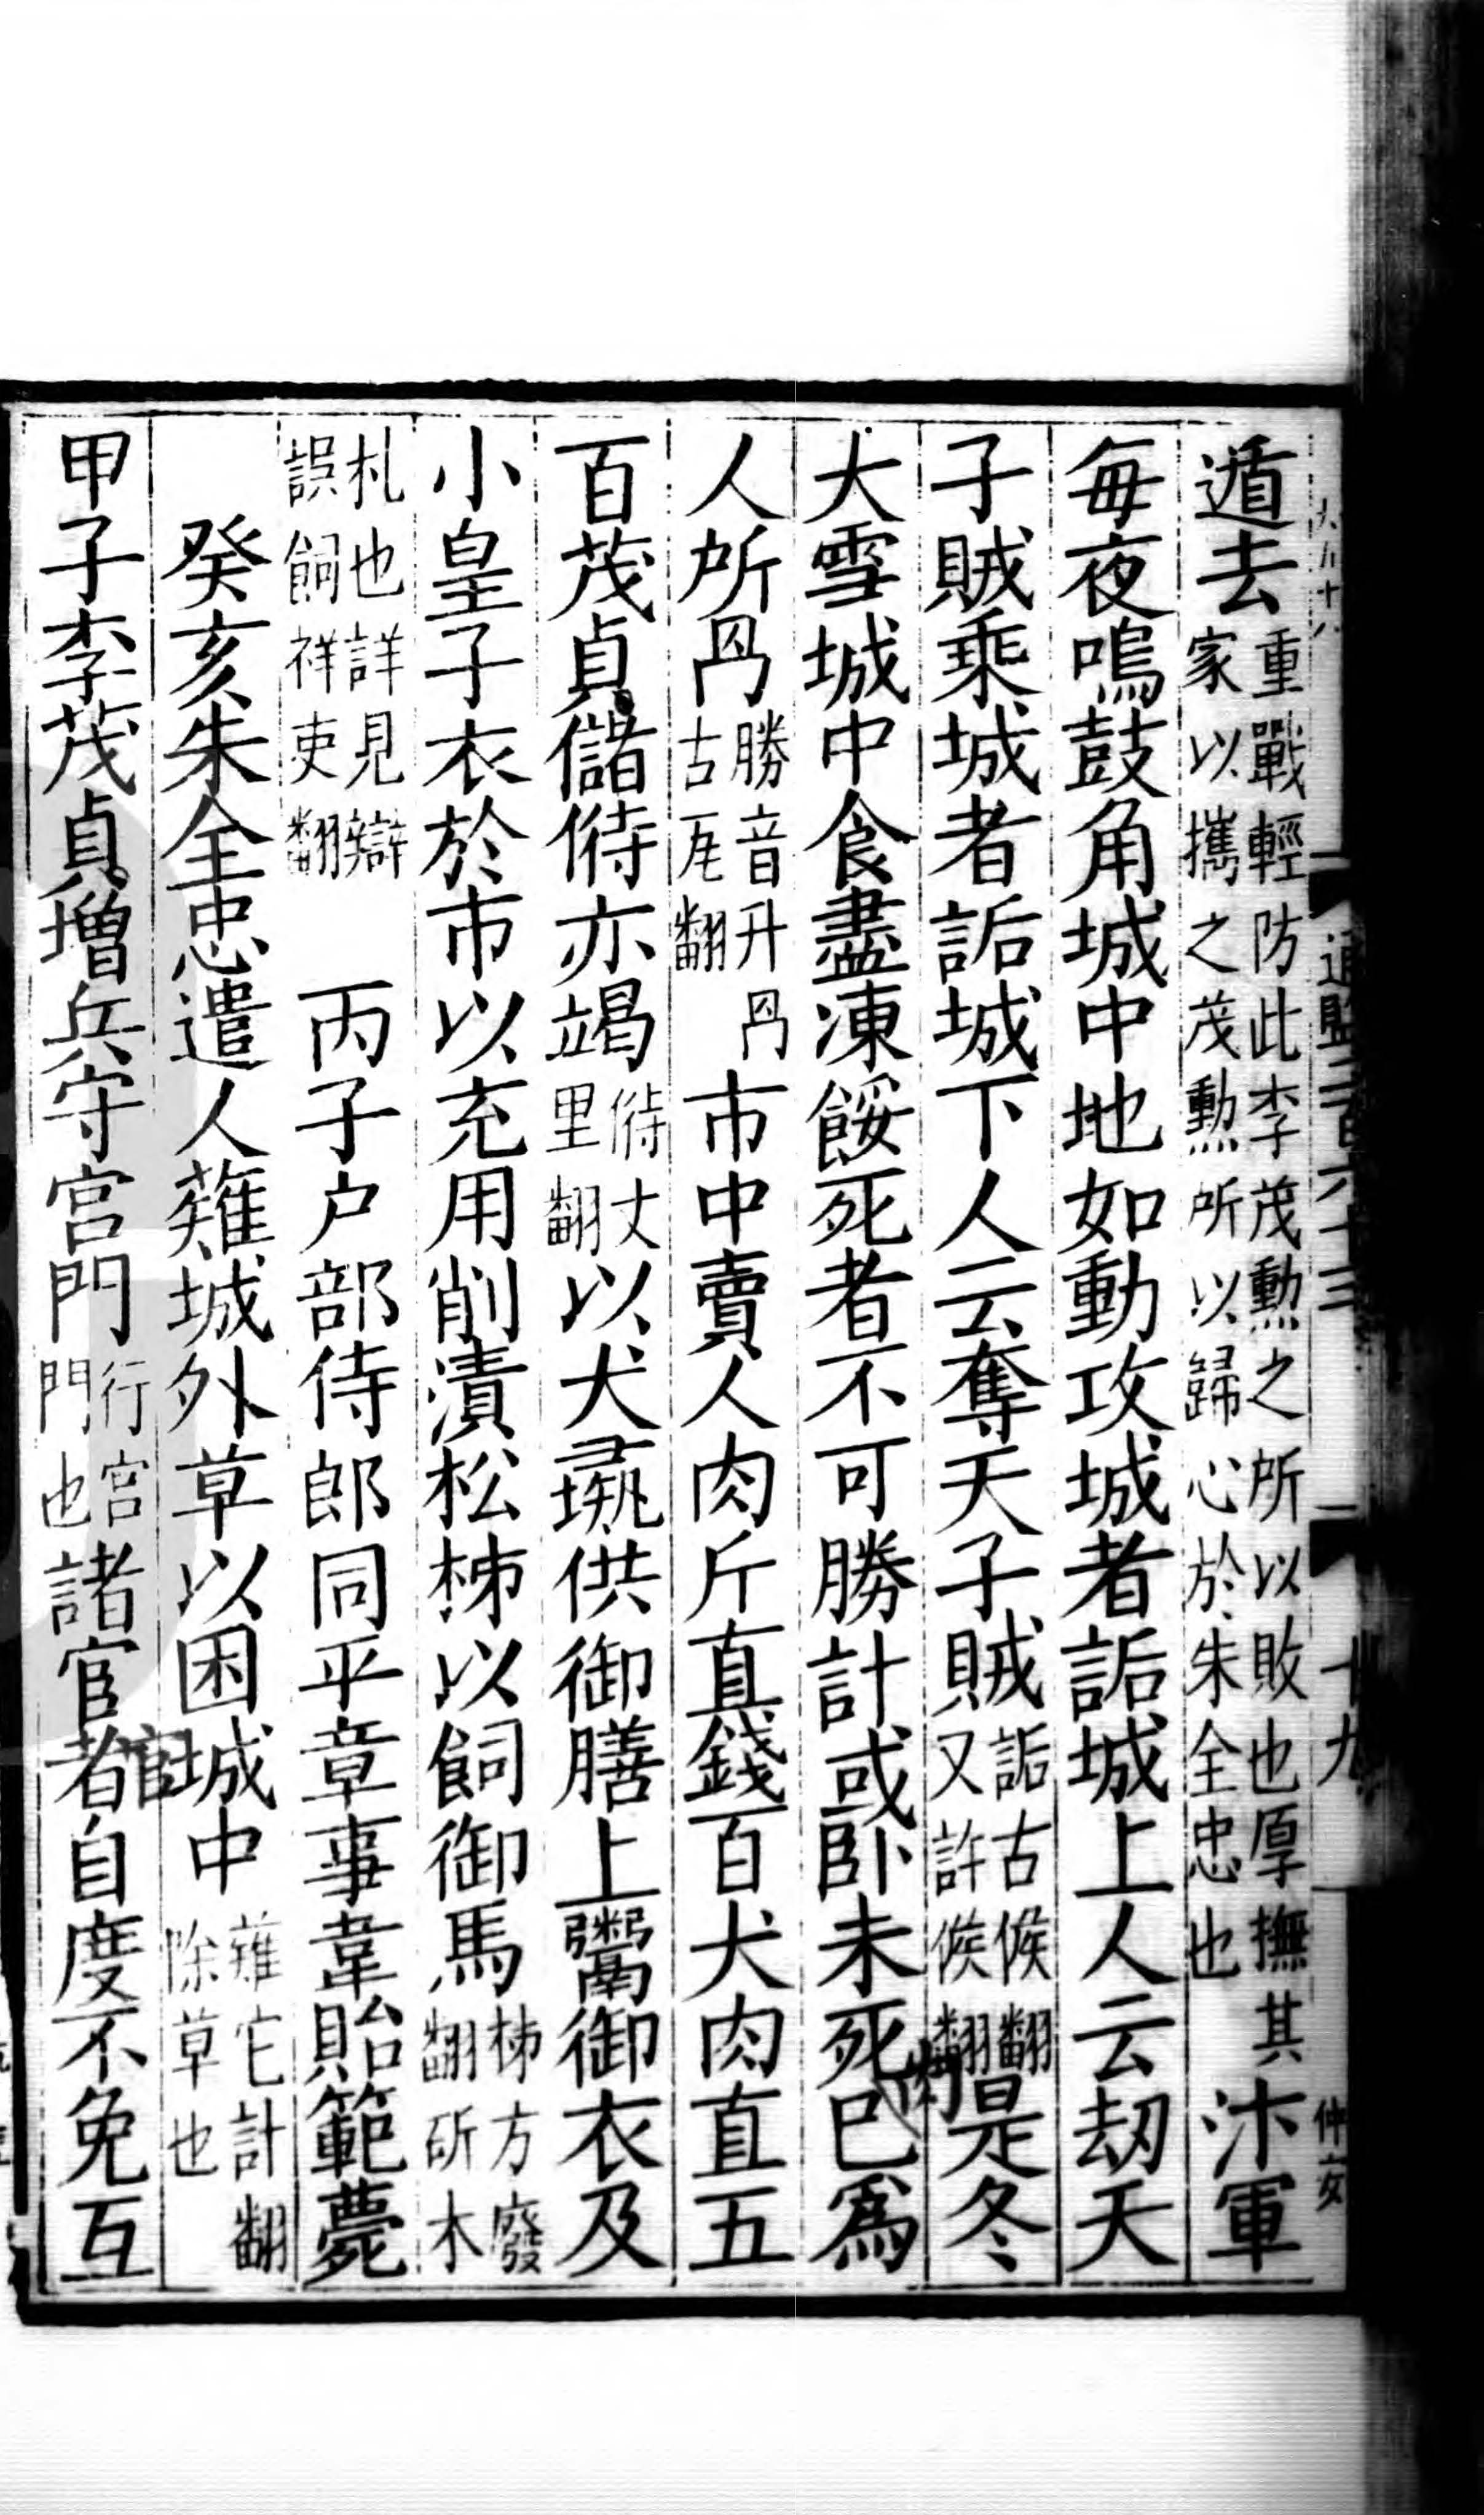 通監二百六十三 十九 仲安
遁去重戰輕防此李茂勲之所以敗也厚撫其家以攜之茂勲所以歸心於朱全忠也汴軍
每夜鳴鼓角城中地如動攻城者詬城上人云刼天
子賊乘城者詬城下人云奪天子賊詬古候翻又許候翻是冬
大雪城中食盡凍餒死者不可勝計或卧未死已爲
人所冎勝音升冎古瓦翻市中賣人肉斤直錢百犬肉直五
百茂貞儲偫亦竭偫丈里翻以犬彘供御膳上鬻御衣及
小皇子衣於市以充用削漬松柹以飼御馬柹方廢翻斫木
札也詳見辯誤飼祥吏翻丙子户部侍郎同平章事韋貽範薨
癸亥朱全忠遣人薙城外草以困城中薙它計翻除草也
甲子李茂貞增兵守宫門行宫門也諸宦者自度不免互